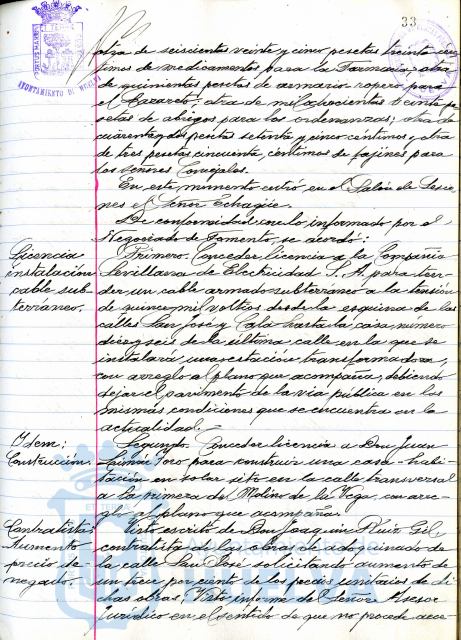 33
AYUNTAMIENTO DE HUELVA
otra de seiscientas veinte y cinco pesetas treinta cén-
timos de medicamentos para la Farmacia; otra
de quinientas pesetas de armario ropero para
el Lazareto; otra de mil ochocientas veinte pe-
setas de abrigos para los ordenanzas; otra de
cuarenta y dos pesetas setenta y cinco céntimos y otra
de tres pesetas cincuenta céntimos de fajines para
los señores Concejales.
En este momento entró en el Salón de Sesio-
nes el Señor Echagüe.
De conformidad con lo informado por el
Negociado de Fomento, se acordó:
Licencia
instalación
cable sub-
terráneo.
Primero. Conceder licencia a la Compañía
Sevillana de Electricidad S. A. para ten-
der un cable armado subterráneo a la tensión
de quince mil voltios desde la esquina de las
calles San José y Cala hasta la casa número
diez y seis de la última calle en la que se
instalará una estación transformadora,
con arreglo al plano que acompaña, debiendo
dejar el pavimento de la vía pública en las
mismas condiciones que se encuentra en la
actualidad.
Idem:
Construcción.
Segundo. Conceder licencia a Don Juan
para construir una casa-habi-
tación en solar sito en la calle transversal
a la primera de Molino de la Vega, con arre-
glo al plano que acompaña.
Contratista:
Aumento
precio de-
negado.
Visto escrito de Don Joaquín Ruiz Gil,
contratista de las obras de adoquinado de
la calle San José, solicitando aumento de
un trece por ciento de los precios unitarios de di-
chas obras; Visto informe del Señor Asesor
Jurídico en el sentido de que no procede acce-
Ayuntamiento de
HUELVA